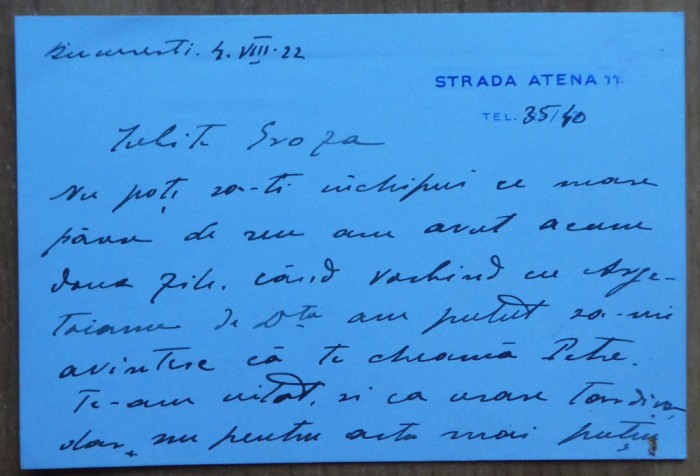 Bucuresti. 4. VIII. 22
STRADA ATENA 11.
TEL. 35/40
Iubite Groza
Nu poți sa-ti inchipui ce mare
părere de reu am avut acum
doua zile, când vorbind cu Arge-
toianu de Dta am putut sa-mi
amintesc că te cheamă Petre.
Te-am uitat, si ca urare tardiva,
dar, nu pentru asta mai puțin